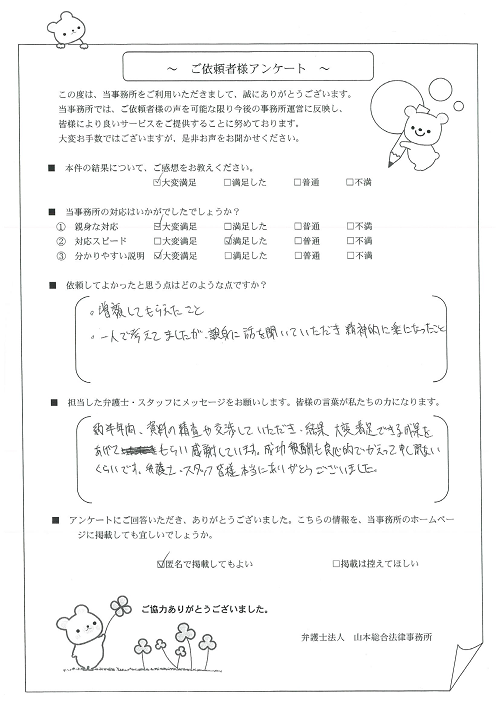 ～ ご依頼者様アンケート ～
この度は、当事務所をご利用いただきまして、誠にありがとうございます。
当事務所では、ご依頼者様の声を可能な限り今後の事務所運営に反映し、
皆様により良いサービスをご提供することに努めております。
大変お手数ではございますが、是非お声をお聞かせください。
■ 本件の結果について、ご感想をお教えください。
☑大変満足 □満足した □普通 □不満
■ 当事務所の対応はいかがでしたでしょうか？
① 親身な対応 ☑大変満足 □満足した □普通 □不満
② 対応スピード □大変満足 ☑満足した □普通 □不満
③ 分かりやすい説明 ☑大変満足 □満足した □普通 □不満
■ 依頼してよかったと思う点はどのような点ですか？
。増額してもらえたこと
。一人で考えてましたが、親身に話を聞いていただき精神的に楽になったこと
■ 担当した弁護士・スタッフにメッセージをお願いします。皆様の言葉が私たちの力になります。
約半年間、資料の精査や交渉していただき、結果、大変満足できる成果を
あげてもらい感謝しています。成功報酬も良心的でかえって申し訳ない
くらいです。弁護士・スタッフ皆様本当にありがとうございました。
■ アンケートにご回答いただき、ありがとうございました。こちらの情報を、当事務所のホームペー
ジに掲載しても宜しいでしょうか。
☑匿名で掲載してもよい □掲載は控えてほしい
ご協力ありがとうございました。
弁護士法人 山本総合法律事務所